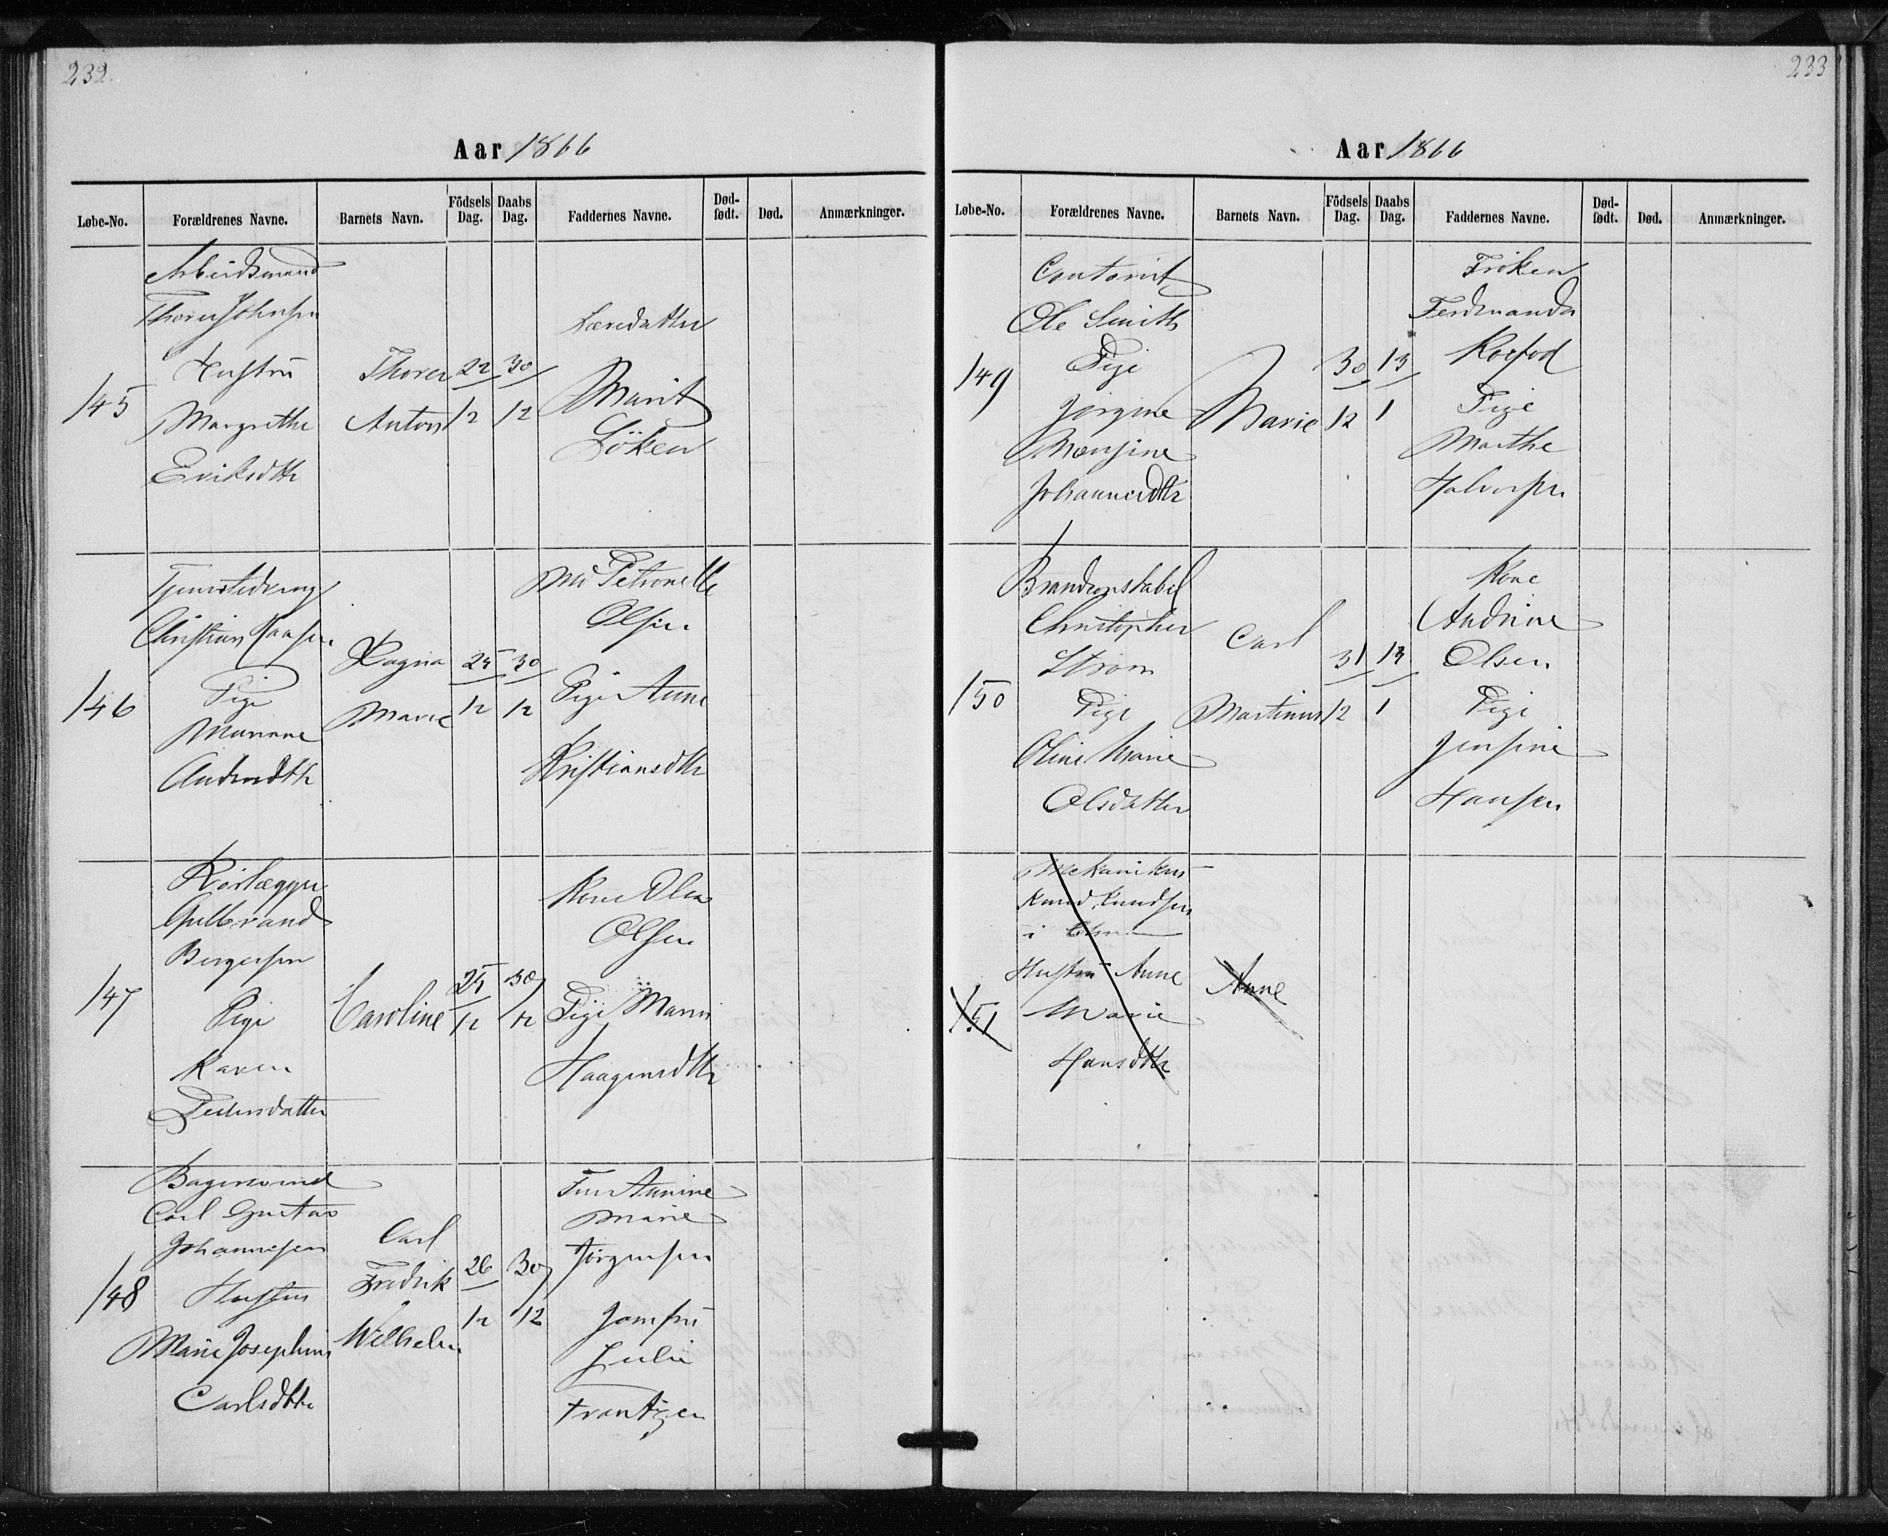 232.
Aar 1866
Løbe-No.
Forældrenes Navne.
Barnets Navn.
Födsels Dag.
Daabs Dag.
Faddernes Navne.
Død-født.
Død.
Anmærkninger.
145
Arbeidsmand
Thorer Johnsen
Hustru
Margrethe
Eriksdtr
Thorer
Anton
22/12
30/12
Marit
Löken
146
Christian
Pige
Mariane
Andersdtr
Ragna
Marie
25/12
30/12
Md Petronelle
Olsen
Pige Anne
Kristiansdtr
147
Rörlægger
Gulbrand
Bergersen
Pige
Karen
Pedersdatter
Caroline
25/12
30/12
Kone Olea
Olsen
Pige Maren
Haagensdtr
148
Bagersvend
Carl Gustav
Johannesen
Hustru
Marie Josephine
Carlsdtr
Carl
Fredrik
Wilhelm
26/12
30/12
Fru Annine
Marie
Jørgensen
Jomfru
Julie
Frantzen
233
Aar 1866
Løbe-No.
Forældrenes Navne.
Barnets Navn.
Födsels Dag.
Daabs Dag.
Faddernes Navne.
Død-født.
Død.
Anmærkninger.
149
Contorist
Ole Smith
Pige
Jørgine
Monsine
Johannesdtr
Marie
30/12
13/1
Fröken
Ferdinanda
Kofod
Pige
Marthe
Halvorsen
150
Brandconstabel
Christopher
Strøm
Pige
Oline Marie
Olsdatter
Carl
Martinus
31/12
13/1
Kone
Andrine
Olsen
Pige
Jensine
Hansen
151
Mekanikus
Knud Knudsen
i Chra
Hustru Anne
Marie
Hansdtr
Anne